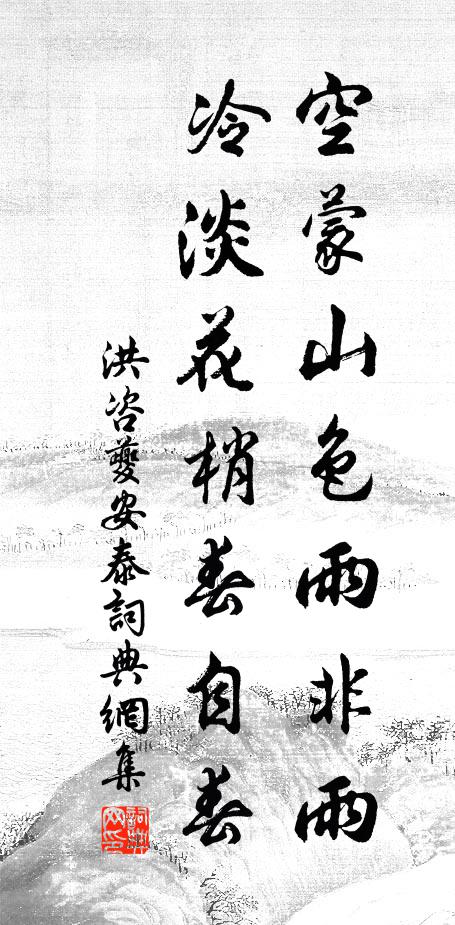 空蒙山色雨非雨
冷淡花梢春自春
洪咨夔安泰詞典網集